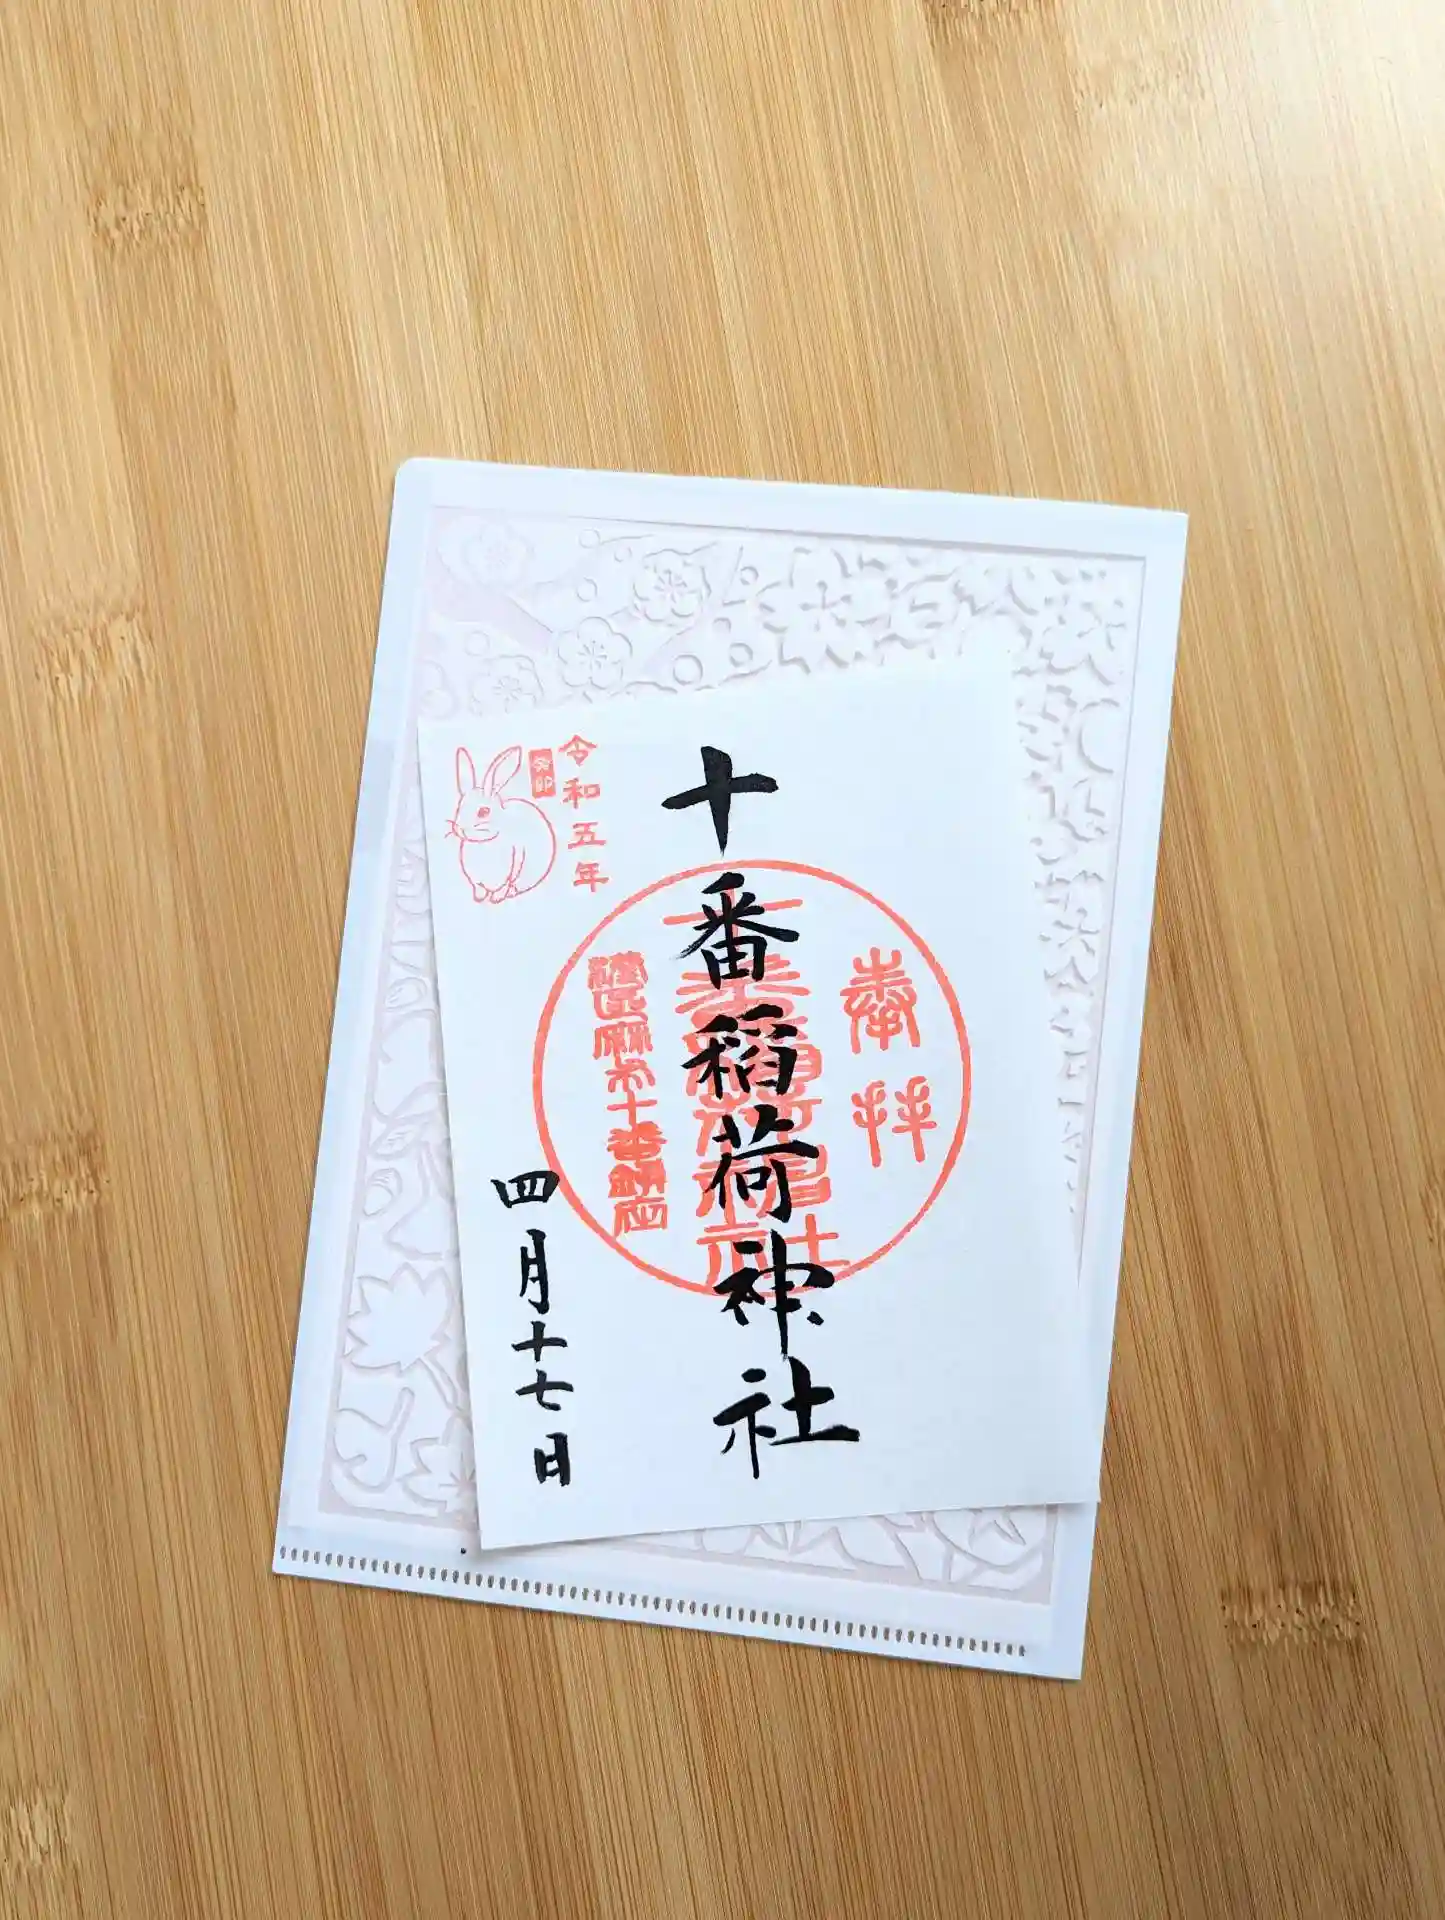 奉拝
十番稲荷神社
港区麻布十番鎮座
十番稲荷神社
令和五年
癸卯
四月十七日